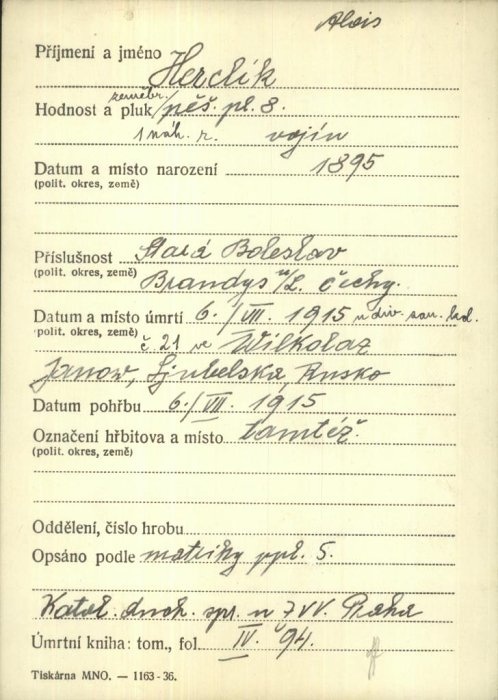 Alois
Příjmení a jméno Herclík
zeměbr.
Hodnost a pluk pěš. pl. 8.
1 náh. r. vojín
Datum a místo narození 1895
(polit. okres, země)
Příslušnost Stará Boleslav
(polit. okres, země) Brandýs n/L. Čechy.
Datum a místo úmrtí 6./VII. 1915 u div. san. kol.
(polit. okres, země) č. 21 ve Wilkolaz
Janow, Ljubelska, Rusko
Datum pohřbu 6./VII. 1915
Označení hřbitova a místo tamtéž.
(polit. okres, země)
Oddělení, číslo hrobu
Opsáno podle matriky ppl. 5.
Katol. duch. spr. u ZVV. Praha
Úmrtní kniha: tom., fol. IV. 94.
Tiskárna MNO. — 1163-36.